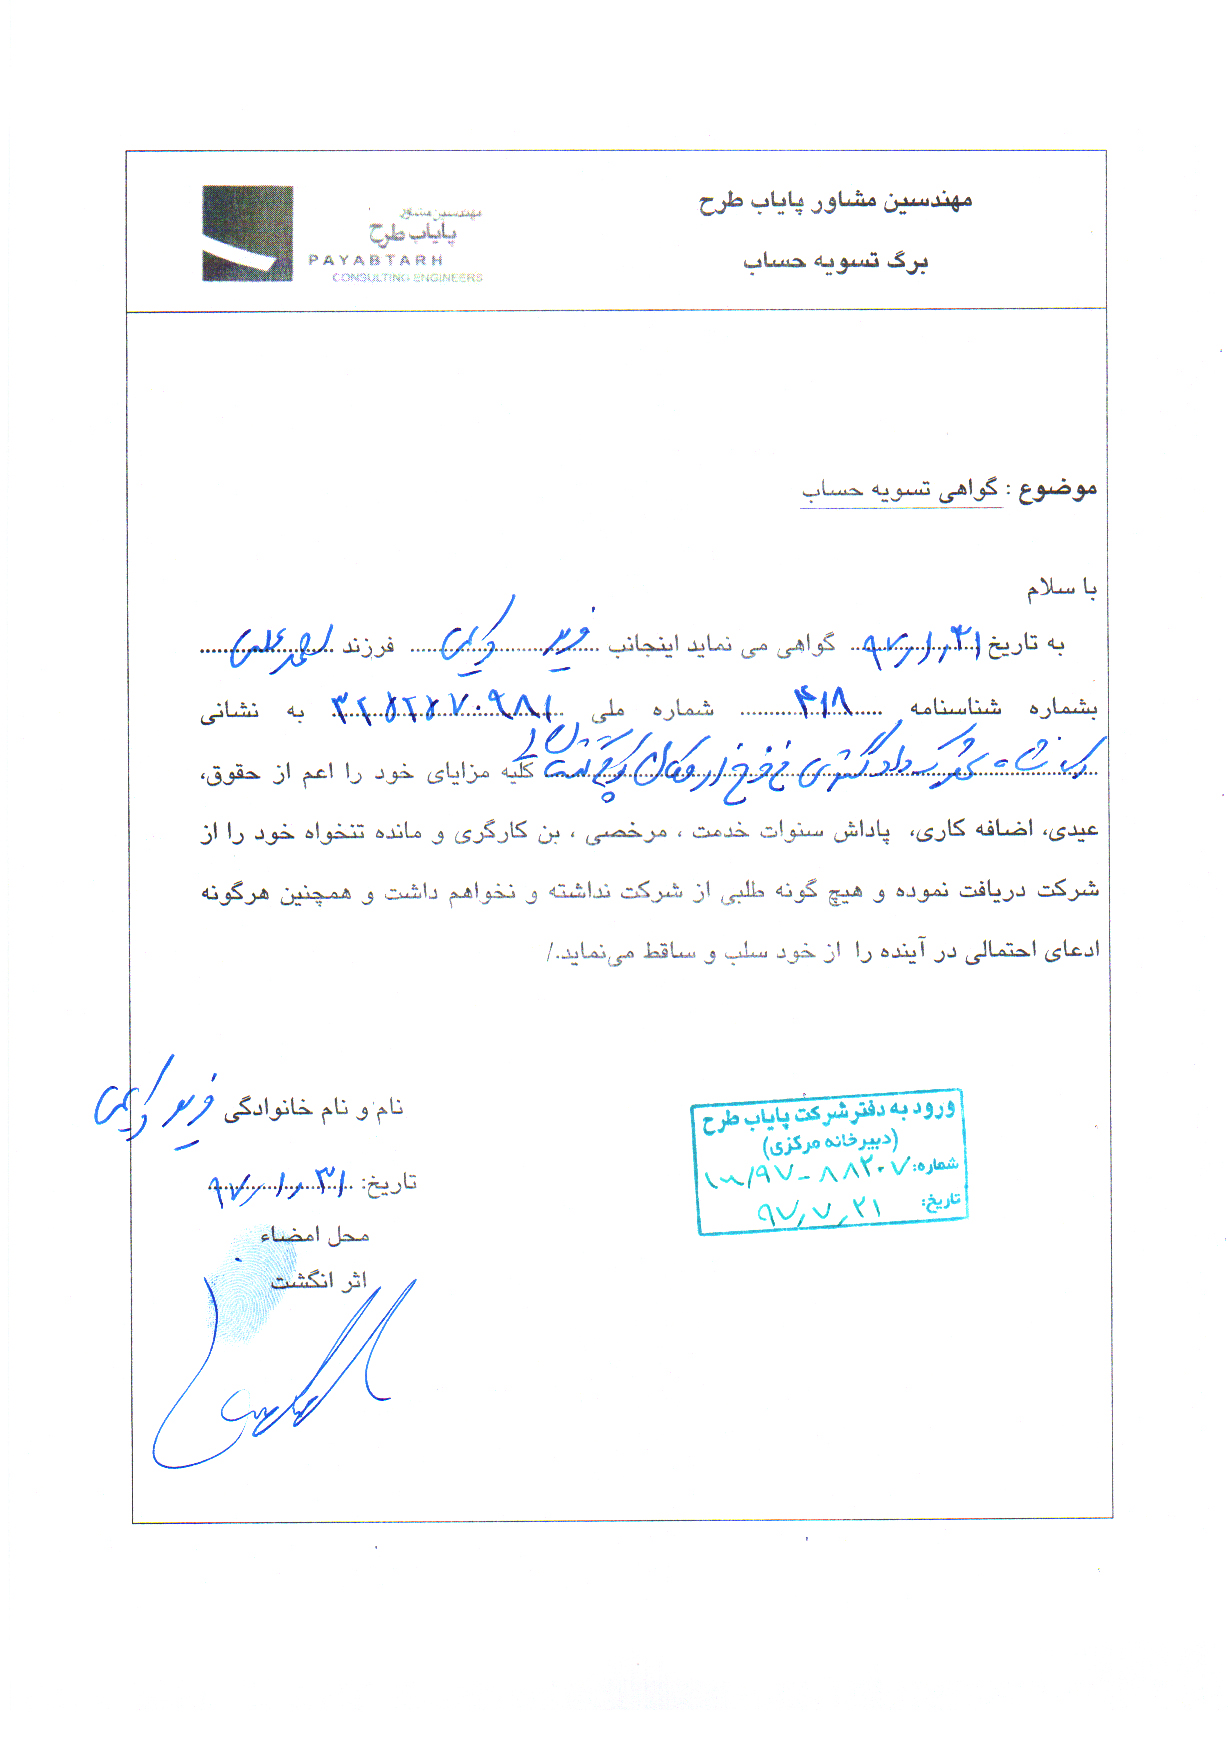 مهندسین مشاور پایاب طرح
برگ تسویه حساب
مهندسین مشاور
پایاب طرح
PAYABTARH
CONSULTING ENGINEERS
موضوع : گواهی تسویه حساب
با سلام
به تاریخ ۹۷/۱/۳۱ گواهی می نماید اینجانب فرید کریمی فرزند
بشماره شناسنامه ۴۱۸ شماره ملی به نشانی
کلیه مزایای خود را اعم از حقوق،
عیدی، اضافه کاری، پاداش سنوات خدمت ، مرخصی ، بن کارگری و مانده تنخواه خود را از
شرکت دریافت نموده و هیچ گونه طلبی از شرکت نداشته و نخواهم داشت و همچنین هرگونه
ادعای احتمالی در آینده را از خود سلب و ساقط می‌نماید./
نام و نام خانوادگی فرید کریمی
تاریخ: ۹۷/۱/۳۱
محل امضاء
اثر انگشت
ورود به دفتر شرکت پایاب طرح
(دبیرخانه مرکزی)
شماره:
تاریخ: ۹۷/۷/۲۱